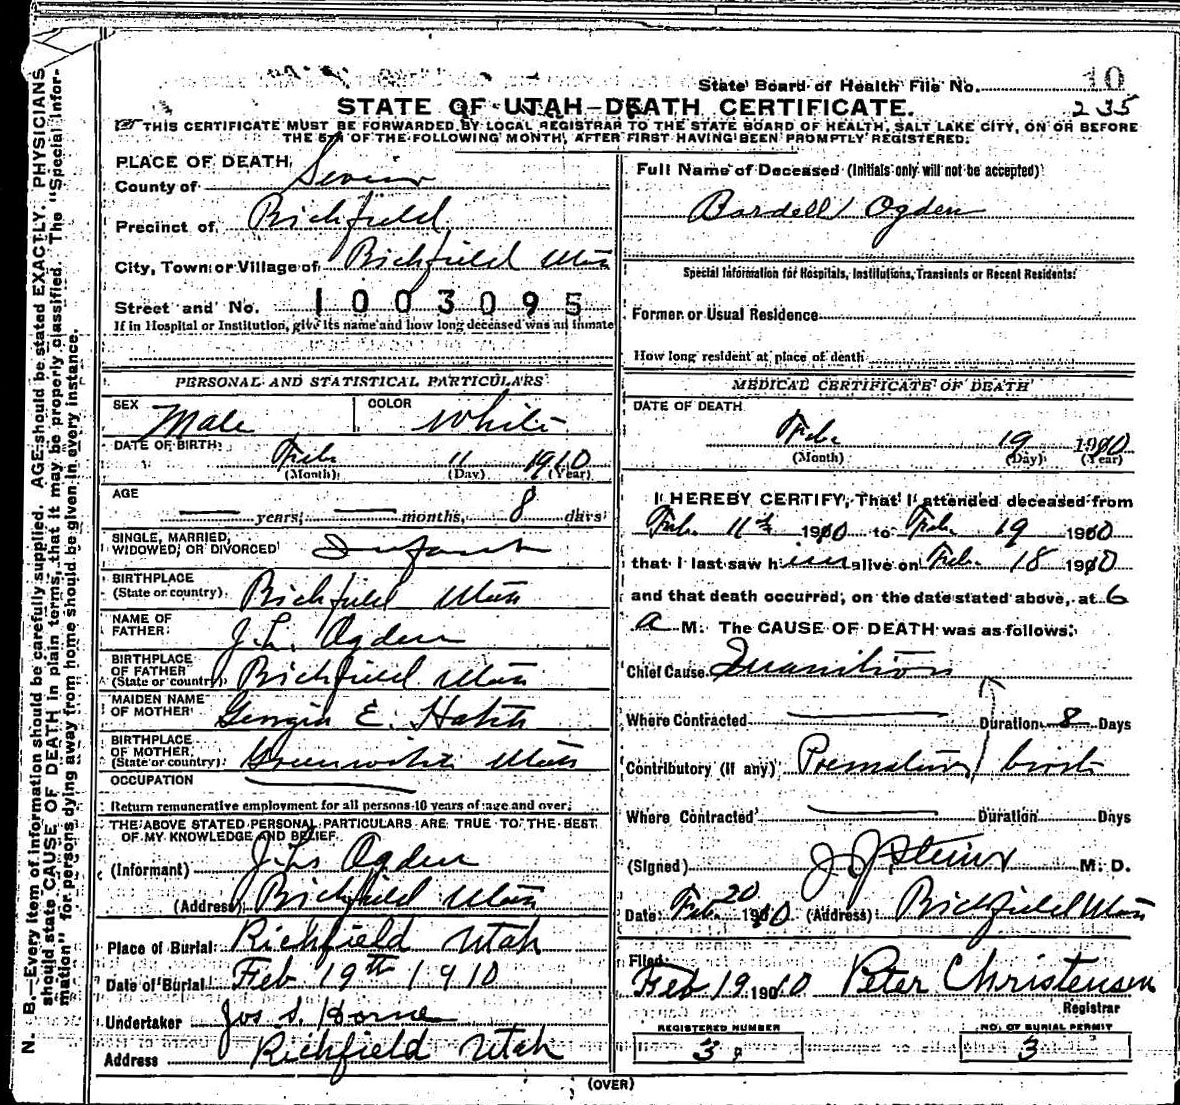 State Board of Health File No. 10
235
STATE OF UTAH—DEATH CERTIFICATE.
THIS CERTIFICATE MUST BE FORWARDED BY LOCAL REGISTRAR TO THE STATE BOARD OF HEALTH, SALT LAKE CITY, ON OR BEFORE
THE 5TH OF THE FOLLOWING MONTH, AFTER FIRST HAVING BEEN PROMPTLY REGISTERED.
N. B.—Every item of information should be carefully supplied. AGE should be stated EXACTLY. PHYSICIANS
should state CAUSE OF DEATH in plain terms, that it may be properly classified. The "Special Infor-
mation" for persons dying away from home should be given in every instance.
PLACE OF DEATH
County of Sevier
Precinct of Richfield
City, Town or Village of Richfield Utah
Street and No. 1003095
If in Hospital or Institution, give its name and how long deceased was an inmate
PERSONAL AND STATISTICAL PARTICULARS
SEX Male COLOR White
DATE OF BIRTH: Feb 11 1910
(Month) (Day) (Year)
AGE
years, months, 8 days
SINGLE, MARRIED,
WIDOWED, OR DIVORCED Infant
BIRTHPLACE
(State or country) Richfield Utah
NAME OF
FATHER: Ogden
BIRTHPLACE
OF FATHER
(State or country) Richfield Utah
MAIDEN NAME
OF MOTHER Georgia E. Hatch
BIRTHPLACE
OF MOTHER
(State or country) Greenwich Utah
OCCUPATION
Return remunerative employment for all persons 10 years of age and over.
THE ABOVE STATED PERSONAL PARTICULARS ARE TRUE TO THE BEST
OF MY KNOWLEDGE AND BELIEF.
(Informant) Ogden
(Address) Richfield Utah
Place of Burial: Richfield Utah
Date of Burial Feb 19th 1910
Undertaker Jos S. Horne
Address Richfield Utah
Full Name of Deceased (Initials only will not be accepted)
Bardell Ogden
Special Information for Hospitals, Institutions, Transients or Recent Residents:
Former or Usual Residence
How long resident at place of death
MEDICAL CERTIFICATE OF DEATH
DATE OF DEATH
Feb 19 1910
(Month) (Day) (Year)
I HEREBY CERTIFY, That I attended deceased from
Feb. 11th 1910 to Feb. 19 1910
that I last saw him alive on Feb. 18 1910
and that death occurred, on the date stated above, at 6
a M. The CAUSE OF DEATH was as follows:
Chief Cause Inanition
Where Contracted Duration 8 Days
Contributory (if any) Premature birth
Where Contracted Duration Days
(Signed) M. D.
Date: Feb. 20 1910 (Address) Richfield Utah
Filed
Feb 19 1910 Peter Christensen
Registrar
REGISTERED NUMBER
3
NO. OF BURIAL PERMIT
3
(OVER)